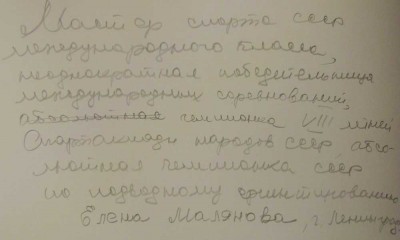 Мастер спорта СССР
международного класса,
неоднократная победительница
международных соревнований,
абсолютная чемпионка VIII летней
Спартакиады народов СССР, абсо-
лютная чемпионка СССР
по подводному ориентированию
Елена Малянова, г. Ленинград